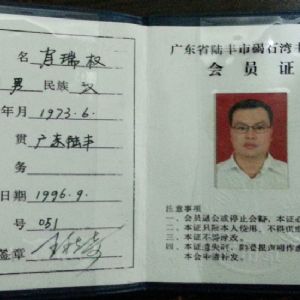 名 肖瑞权
男 民族 汉
年月 1973.6.
贯 广东陆丰
日期 1996.9.
号 051
签章
广东省陆丰市碣石湾
会员证
注意事项
一、会员退会或停止会籍,本证
二、本证只限本人使用,不得
三、本证不得涂改。
四、本证遗失时,即登报声明作
本会申请补发。